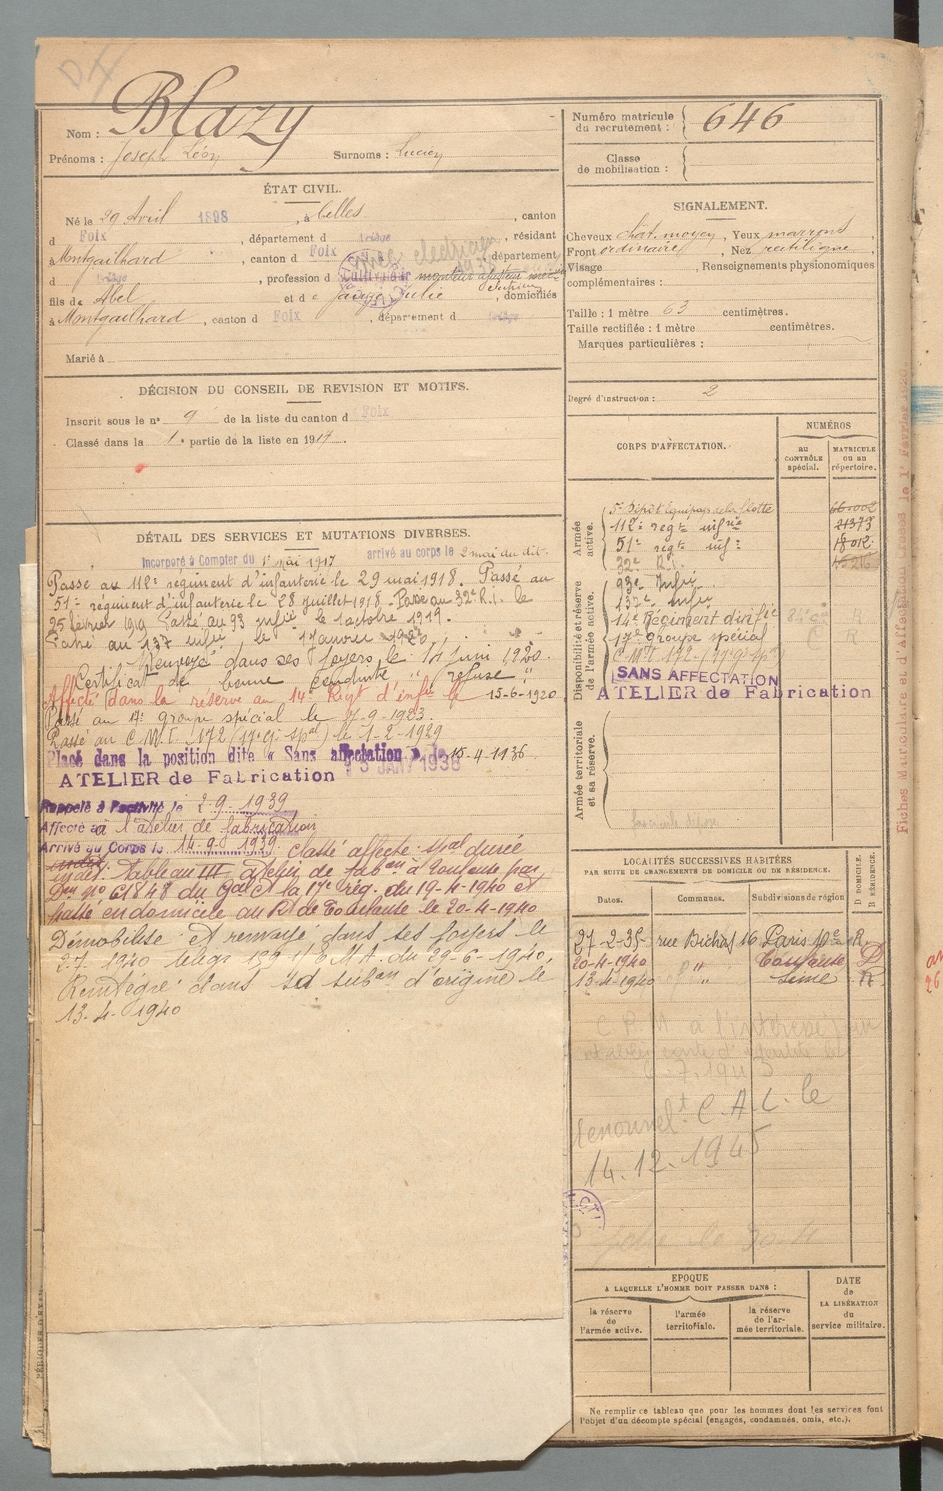 Nom : Blazy
Prénoms : Joseph Léon Surnoms : Lucien
ÉTAT CIVIL.
Né le 29 Avril 1898, à Celles, canton
d Foix, département d Ariège, résidant
à Montgailhard, canton d Foix, département
d Ariège, profession d Cultivateur monteur
fils de Abel et de Jauze Julie, domiciliés
à Montgailhard, canton d Foix, département d Ariège
Marié à
DÉCISION DU CONSEIL DE REVISION ET MOTIFS.
Inscrit sous le n° 9 de la liste du canton d Foix
Classé dans la 1e partie de la liste en 1917.
DÉTAIL DES SERVICES ET MUTATIONS DIVERSES.
Incorporé à Compter du 1er mai 1917 arrivé au corps le 2 mai du dit.
Passé au 112e régiment d'infanterie le 29 mai 1918. Passé au
51e régiment d'infanterie le 28 juillet 1918. Passé au 32e R.I. le
25 février 1919 Passé au 93 infie le 1octobre 1919.
Passé au 137 infie, le 1 Janvier 1920.
Renvoyé dans ses foyers, le 14 Juin 1920.
Certificat de bonne conduite "refusé".
Affecté dans la réserve au 14e Régt d'infie le 15-6-1920
Passé au 17e groupe spécial le 7-9-1923.
Passé au C.M.I. 172 (17e gr spal) le 1-2-1929
Placé dans la position dite « Sans affectation » le 15-4-1936
13 JANV 1938
ATELIER de Fabrication
Rappelé à l'activité le 2-9-1939
Affecté à l'atelier de fabrication
Arrivé au Corps le 14-9-1939 Classé affecté spal durée
indét. Tableau III atelier de fabon à Toulouse par
Don n° C1848 du Gal Ct la 17e rég. du 19-4-1940 et
passé en domicile au Rt de Toulouse le 20-4-1940
Démobilisé et renvoyé dans ses foyers le
2.7.1940 du 29-6-1940,
Réintégré dans sa subon d'origine le
13.4.1940
Numéro matricule du recrutement : 646
Classe de mobilisation :
SIGNALEMENT.
Cheveux chat. moyen, Yeux marrons
Front ordinaire, Nez rectiligne
Visage , Renseignements physionomiques
complémentaires :
Taille : 1 mètre 63 centimètres.
Taille rectifiée : 1 mètre centimètres.
Marques particulières :
Degré d'instruction : 2
CORPS D'AFFECTATION.
NUMÉROS
au CONTRÔLE spécial.
MATRICULE OU AU répertoire.
Armée active.
5e Dépôt Équipages de la flotte
112e regt infrie 21373
51e regt inf : 18012
32e R.I.
Disponibilité et réserve de l'armée active.
93e Infie
137e Infie
14e Régiment d'infie
17e groupe spécial
C.M.I. 172 - (17e gr spal)
SANS AFFECTATION
ATELIER de Fabrication
Armée territoriale et sa réserve.
LOCALITÉS SUCCESSIVES HABITÉES
PAR SUITE DE CHANGEMENTS DE DOMICILE OU DE RÉSIDENCE.
Dates. Communes. Subdivisions de région
D. DOMICILE. R. RÉSIDENCE.
27-2-35- rue Bichat 16 Paris 10e R
20-4-1940 " Toulouse D
13-4-1940 " Seine R
C R M à l'intéressé
7.1945
Renouvelt C.A.L. le
14.12.1945
EPOQUE
A LAQUELLE L'HOMME DOIT PASSER DANS :
la réserve de l'armée active.
l'armée territoriale.
la réserve de l'armée territoriale.
DATE de LA LIBÉRATION du service militaire.
Ne remplir ce tableau que pour les hommes dont les services font
l'objet d'un décompte spécial (engagés, condamnés, omis, etc.).
Fiches Matriculaire et d'Affectation Créées le 1er Février 1920.